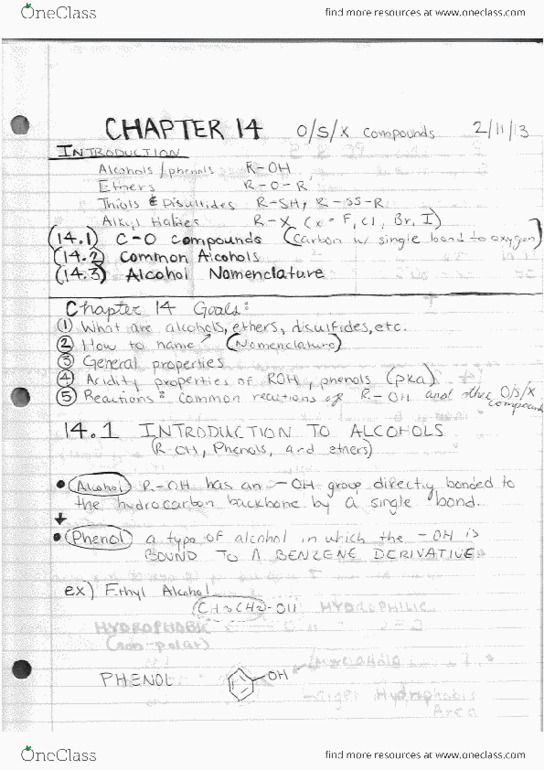 OneClass
find more resources at www.oneclass.com
CHAPTER 14 O/S/X compounds 2/11/13
INTRODUCTION
Alcohols/phenols R-OH
Ethers R-O-R
Thiols & Disulfides R-SH, R-SS-R
Alkyl Halides R-X (x = F, Cl, Br, I)
(14.1) C-O compounds (carbon w/ single bond to oxygen)
(14.2) Common Alcohols
(14.3) Alcohol Nomenclature
Chapter 14 Goals:
① What are alcohols, ethers, disulfides, etc.
② How to name? (Nomenclature)
③ General properties
④ Acidity properties of ROH, phenols (pka)
⑤ Reactions: Common reactions of R-OH and other O/S/X compounds
14.1 INTRODUCTION TO ALCOHOLS
(R-OH, Phenols, and ethers)
• Alcohol R-OH has an -OH group directly bonded to
the hydrocarbon backbone by a single bond.
• Phenol a type of alcohol in which the -OH is
BOUND TO A BENZENE DERIVATIVE
ex) Ethyl Alcohol
CH3CH2-OH HYDROPHILIC
HYDROPHOBIC
(non-polar)
PHENOL OH
Hydrophobic
Area
OneClass
find more resources at www.oneclass.com